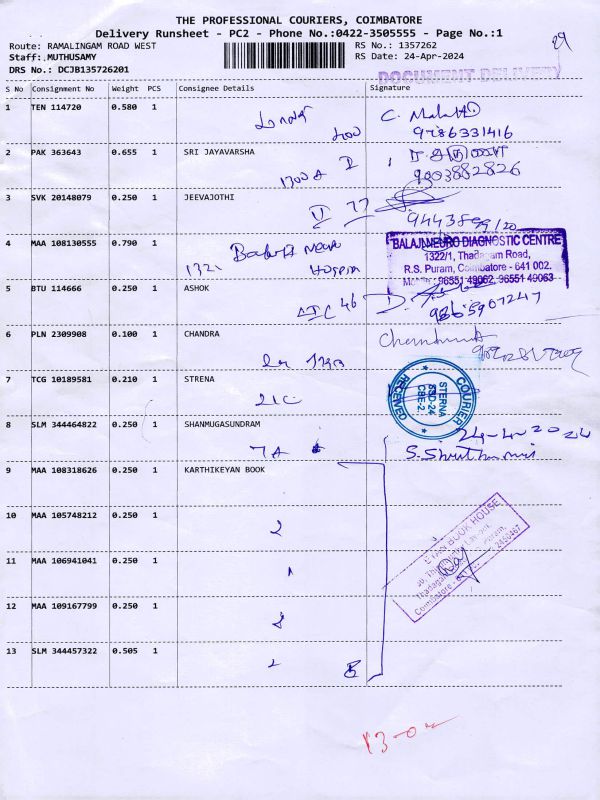 THE PROFESSIONAL COURIERS, COIMBATORE
Delivery Runsheet - PC2 - Phone No.:0422-3505555 - Page No.:1
Route: RAMALINGAM ROAD WEST RS No.: 1357262
Staff: MUTHUSAMY RS Date: 24-Apr-2024
DRS No.: DCJB135726201
DOCUMENT DELIVERY
S No Consignment No Weight PCS Consignee Details Signature
1 TEN 114720 0.580 1
9786331416
2 PAK 363643 0.655 1 SRI JAYAVARSHA
1300 A
9003882826
3 SVK 20148079 0.250 1 JEEVAJOTHI
77
4 MAA 108130555 0.790 1
1321
BALAJI NEURO DIAGNOSTIC CENTRE
1322/1, Thadagam Road,
R.S. Puram, Coimbatore - 641 002.
Mobile: 96551 49062, 96551 49063
5 BTU 114666 0.250 1 ASHOK
46
6 PLN 2309908 0.100 1 CHANDRA
7 TCG 10189581 0.210 1 STRENA
21C
COURIER
STERNA
CBE-2.
RECEIVED
8 SLM 344464822 0.250 1 SHANMUGASUNDRAM
7A
24-4-2024
9 MAA 108318626 0.250 1 KARTHIKEYAN BOOK
10 MAA 105748212 0.250 1
2
11 MAA 106941041 0.250 1
BOOK HOUSE
2450467
12 MAA 109167799 0.250 1
13 SLM 344457322 0.505 1